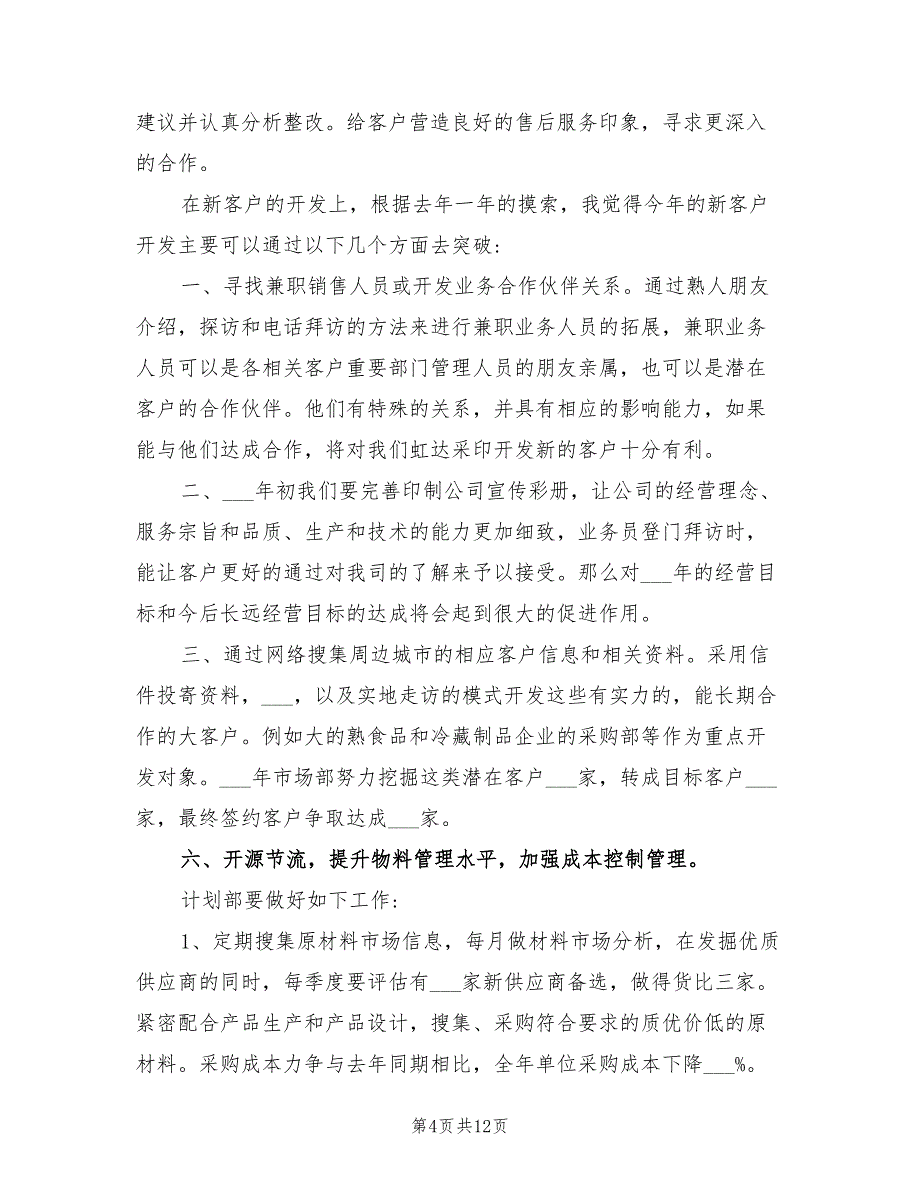 建议并认真分析整改。给客户营造良好的售后服务印象，寻求更深入
的合作。
在新客户的开发上，根据去年一年的摸索，我觉得今年的新客户
开发主要可以通过以下几个方面去突破:
一、寻找兼职销售人员或开发业务合作伙伴关系。通过熟人朋友
介绍，探访和电话拜访的方法来进行兼职业务人员的拓展，兼职业务
人员可以是各相关客户重要部门管理人员的朋友亲属，也可以是潜在
客户的合作伙伴。他们有特殊的关系，并具有相应的影响能力，如果
能与他们达成合作，将对我们虹达采印开发新的客户十分有利。
二、___年初我们要完善印制公司宣传彩册，让公司的经营理念、
服务宗旨和品质、生产和技术的能力更加细致，业务员登门拜访时，
能让客户更好的通过对我司的了解来予以接受。那么对___年的经营目
标和今后长远经营目标的达成将会起到很大的促进作用。
三、通过网络搜集周边城市的相应客户信息和相关资料。采用信
件投寄资料，___，以及实地走访的模式开发这些有实力的，能长期合
作的大客户。例如大的熟食品和冷藏制品企业的采购部等作为重点开
发对象。___年市场部努力挖掘这类潜在客户___家，转成目标客户___
家，最终签约客户争取达成___家。
六、开源节流，提升物料管理水平，加强成本控制管理。
计划部要做好如下工作:
1、定期搜集原材料市场信息，每月做材料市场分析，在发掘优质
供应商的同时，每季度要评估有___家新供应商备选，做得货比三家。
紧密配合产品生产和产品设计，搜集、采购符合要求的质优价低的原
材料。采购成本力争与去年同期相比，全年单位采购成本下降___%。
第4页共12页